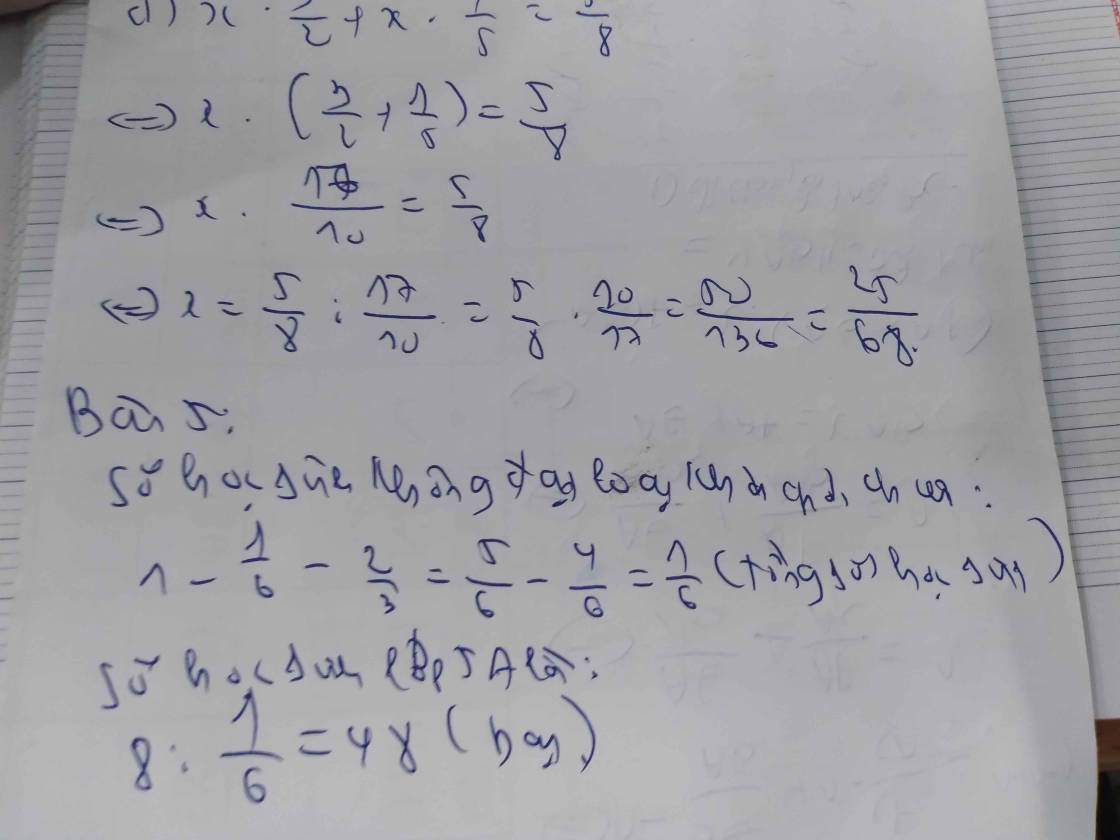 d) x · 3/2 + x · 1/5 = 5/8
<=> x · (3/2 + 1/5) = 5/8
<=> x · 17/10 = 5/8
<=> x = 5/8 : 17/10 = 5/8 · 10/17 = 50/136 = 25/68.
Bài 5:
Số học sinh không đạt loại khá,
1 - 1/6 - 2/3 = 5/6 - 4/6 = 1/6 (tổng số học sinh)
Số học sinh lớp 5A là:
8 : 1/6 = 48 (bạn)